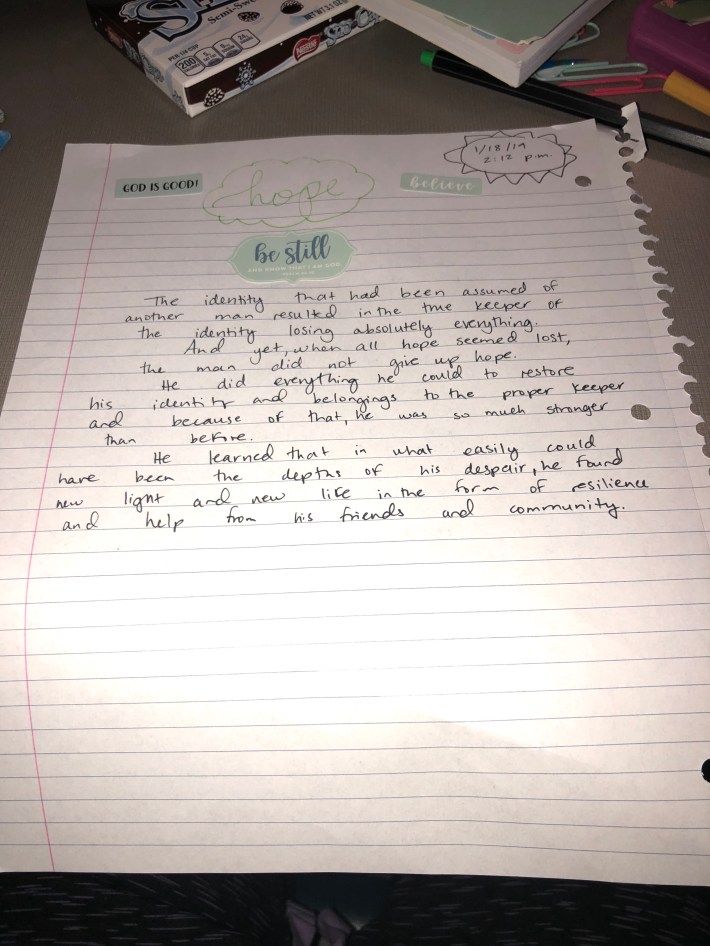 Semi-Swe
NET WT 3.1 OZ
PER 1/4 CUP
200
Nestle
1/18/19
2:12 p.m.
GOD IS GOOD!
hope
believe
be still
AND KNOW THAT I AM GOD
The identity that had been assumed of
another man resulted in the true keeper of
the identity losing absolutely everything.
And yet, when all hope seemed lost,
the man did not give up hope.
He did everything he could to restore
his identity and belongings to the proper keeper
and because of that, he was so much stronger
than before.
He learned that in what easily could
have been the depths of his despair, he found
new light and new life in the form of resilience
and help from his friends and community.